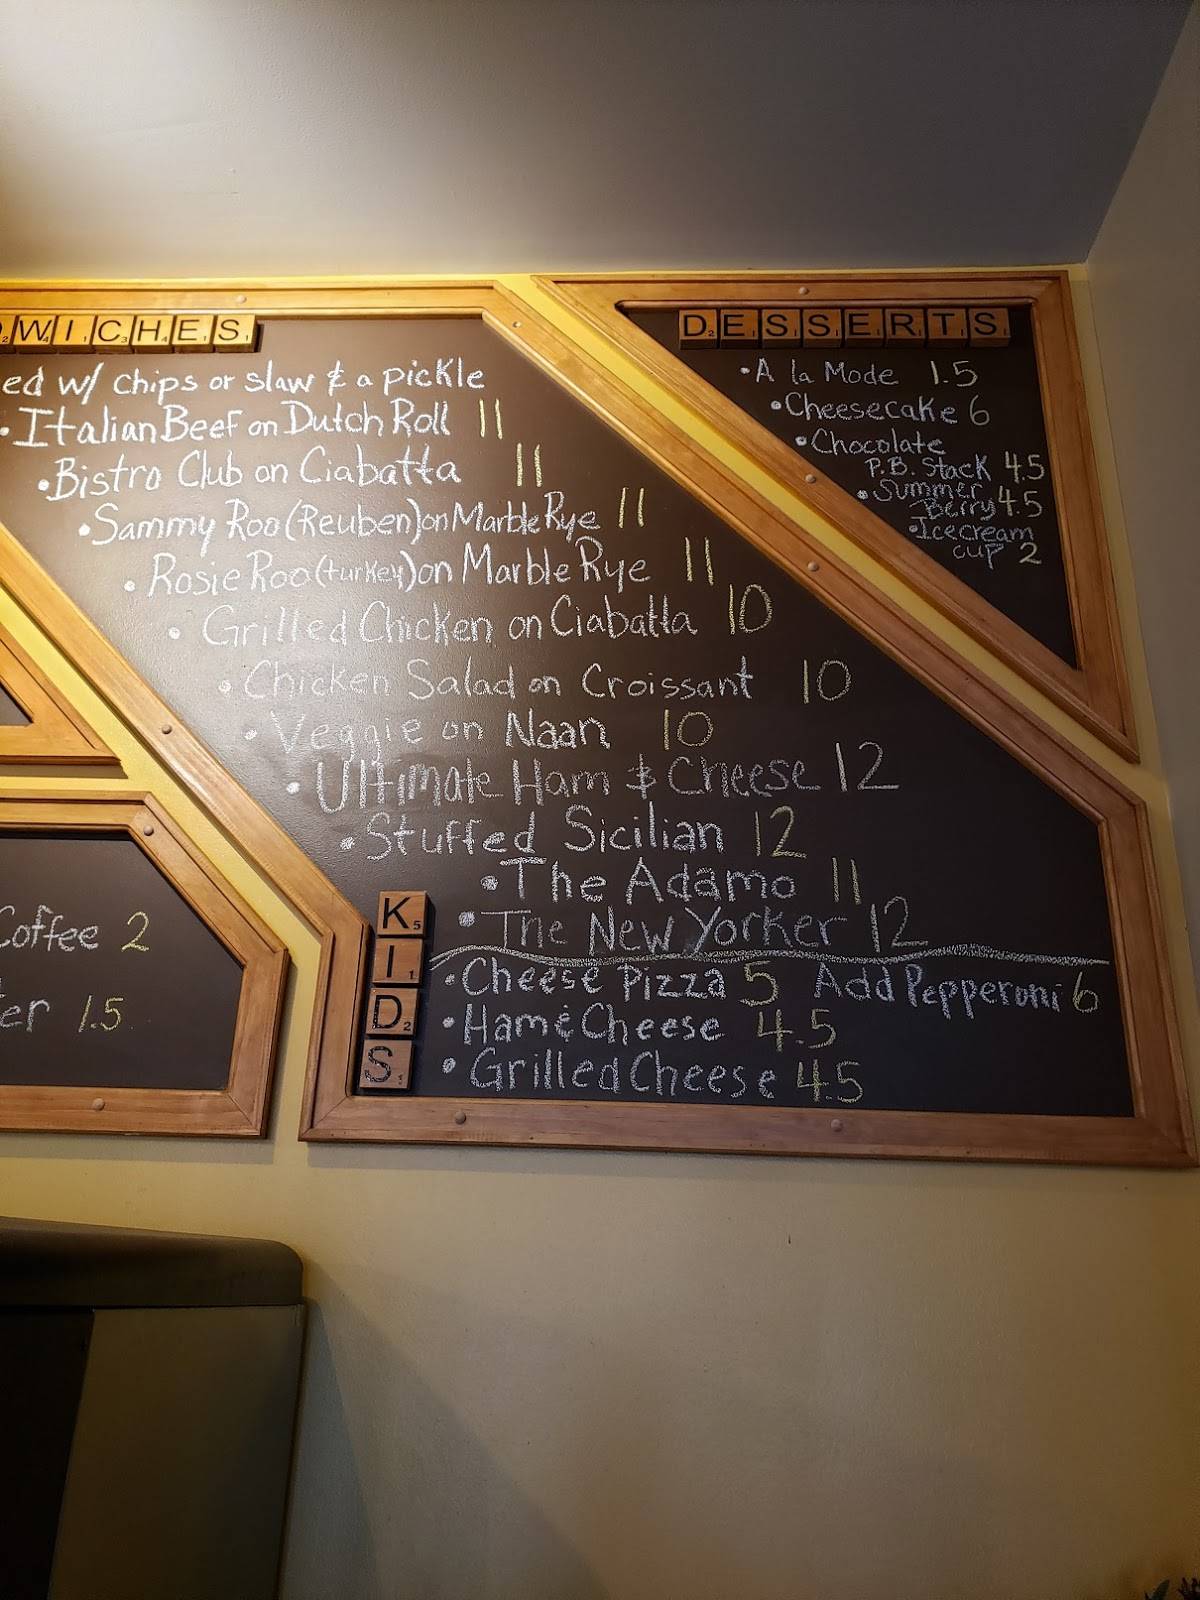 WICHES
ed w/ chips or slaw & a pickle
• Italian Beef on Dutch Roll 11
• Bistro Club on Ciabatta 11
• Sammy Roo (Reuben) on Marble Rye 11
• Rosie Roo (turkey) on Marble Rye 11
• Grilled Chicken on Ciabatta 10
• Chicken Salad on Croissant 10
• Veggie on Naan 10
• Ultimate Ham & Cheese 12
• Stuffed Sicilian 12
• The Adamo 11
• The New Yorker 12
KIDS
• Cheese Pizza 5 Add Pepperoni 6
• Ham & Cheese 4.5
• Grilled Cheese 4.5
DESSERTS
• A la Mode 1.5
• Cheesecake 6
• Chocolate
P.B. Stack 4.5
• Summer
Berry 4.5
• Icecream
cup 2
Coffee 2
er 1.5